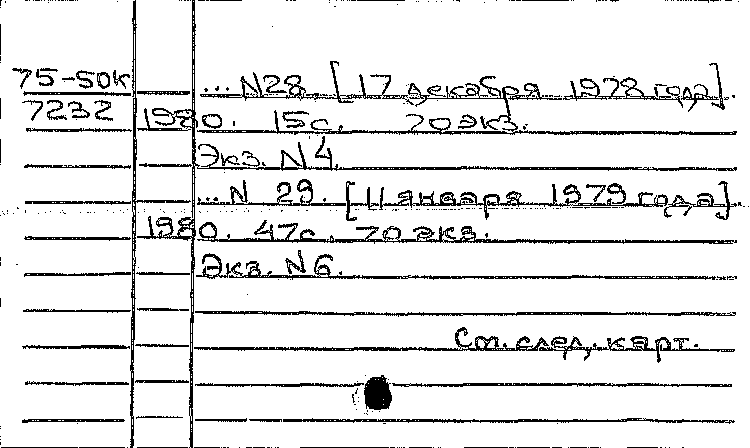 75-50к ... N28. [17 декабря 1978 года].
7232 1980. 15с. 70 экз.
Экз. N4.
... N 29. [11 января 1979 года].
1980. 47с. 70 экз.
Экз. N6.
См. след. карт.